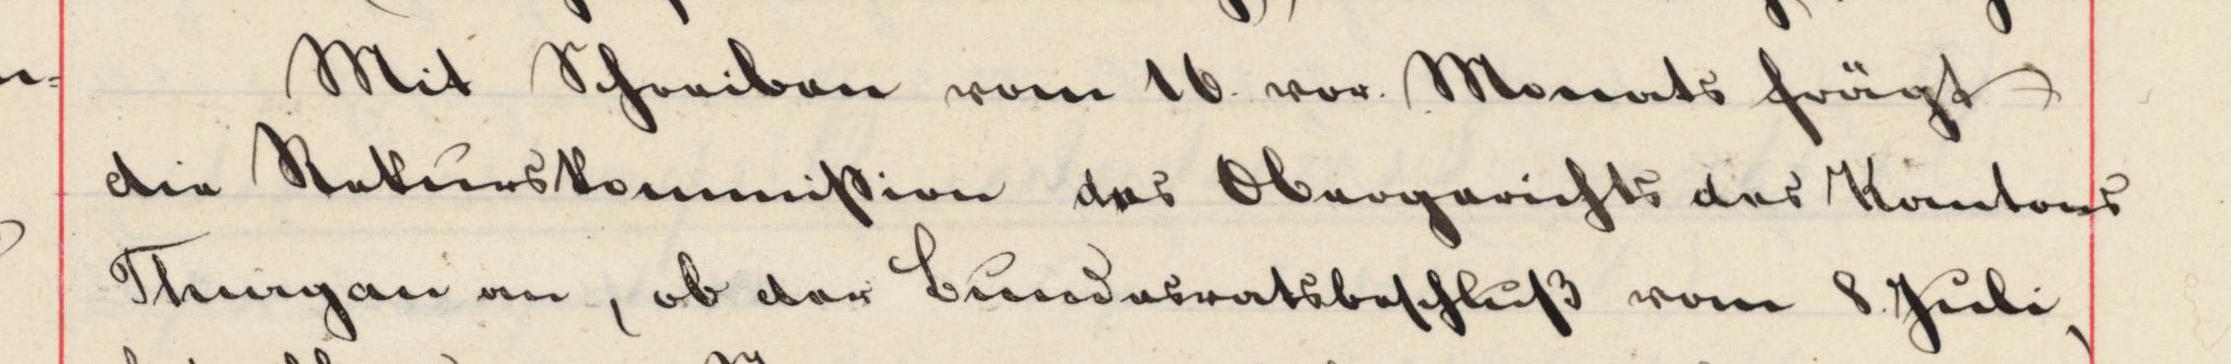 Mit Schreiben vom 16. vor. Monats frägt
die Rekurskommißion des Obergerichts des Kantons
Thurgau an, ob der Bundesratsbeschluß vom 8. Juli,